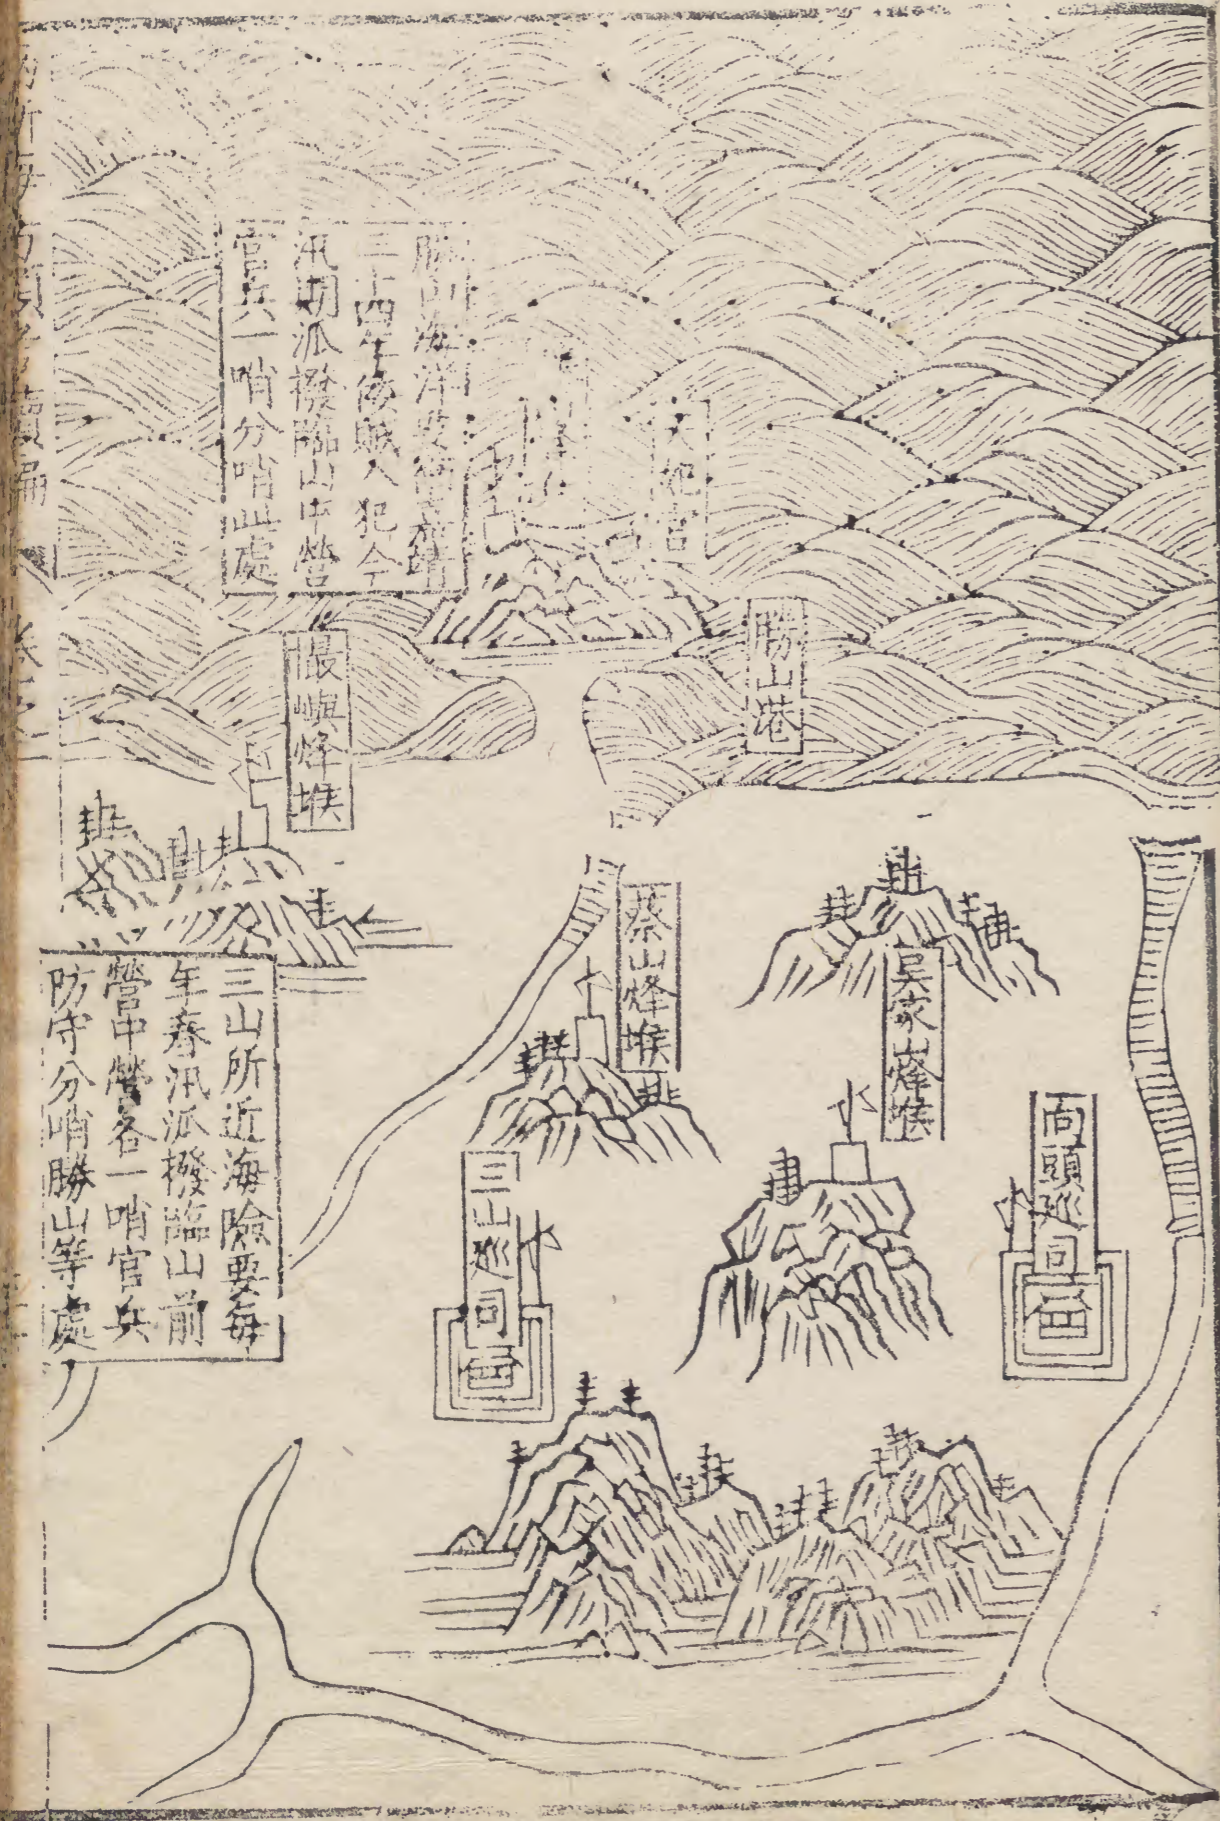 勝山海洋要衝嘉靖
三十四年倭賊入犯今
汛期派撥臨山中營
官兵一哨分哨此處
天妃宮
勝山港
眼嶼烽堠
蔡山烽堠
吳家山烽堠
向頭巡司
三山巡司
三山所近海險要每
年春汛派撥臨山前
營中營各一哨官兵
防守分哨勝山等處